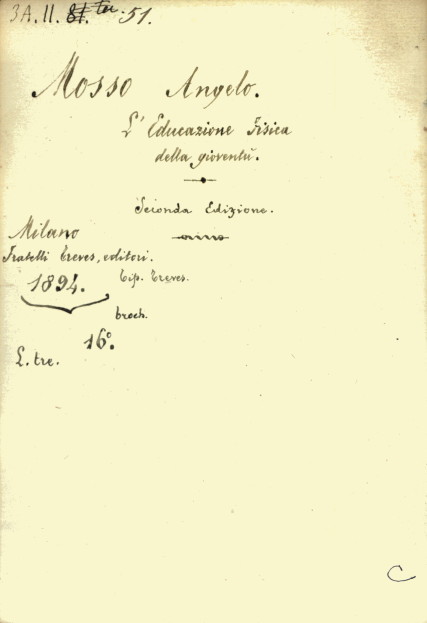 3A. II. 81. ter. 51.
Mosso Angelo.
L'Educazione Fisica
della gioventù.
Seconda Edizione.
Milano
Fratelli Treves, editori.
1894. Tip. Treves.
broch.
16°.
L. tre.
C